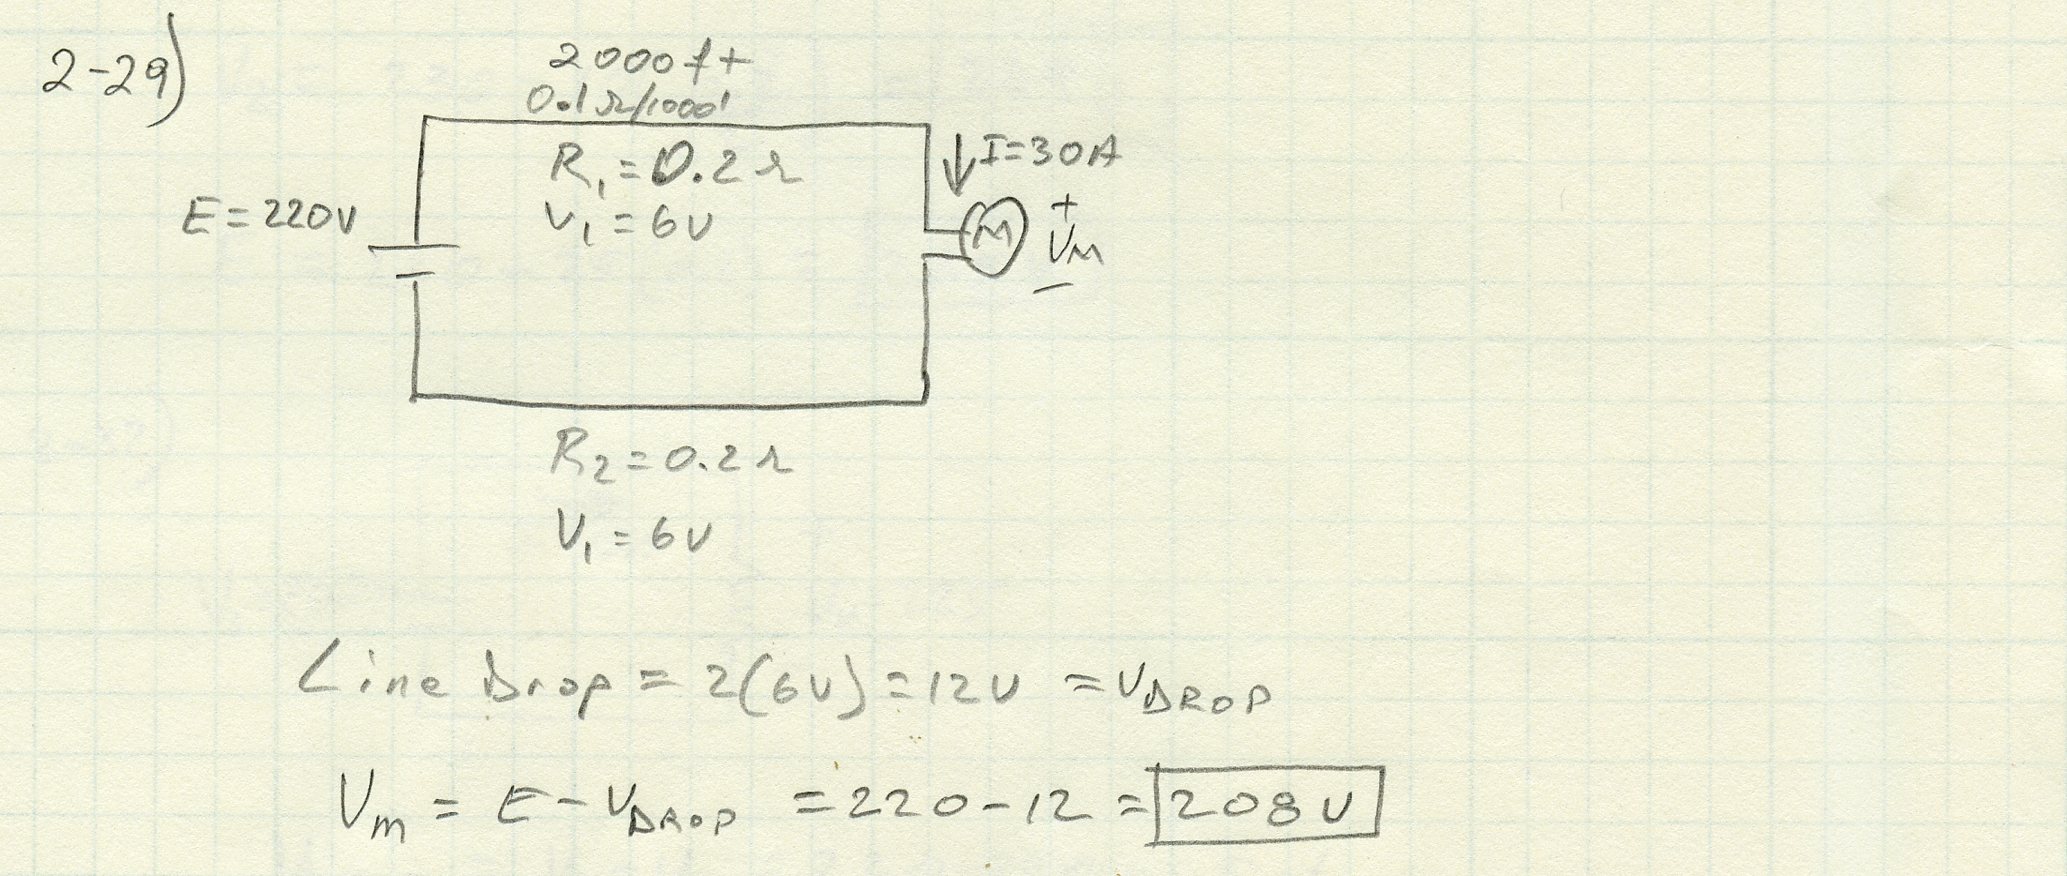 2-29)
2000ft
0.1Ω/1000'
R₁=0.2Ω
I=30A
E=220V
V₁=6V
M
+
VM
−
R2=0.2Ω
V₁=6V
Line Drop = 2(6V)=12V =VDROP
Vm = E-VDROP =220-12=208V